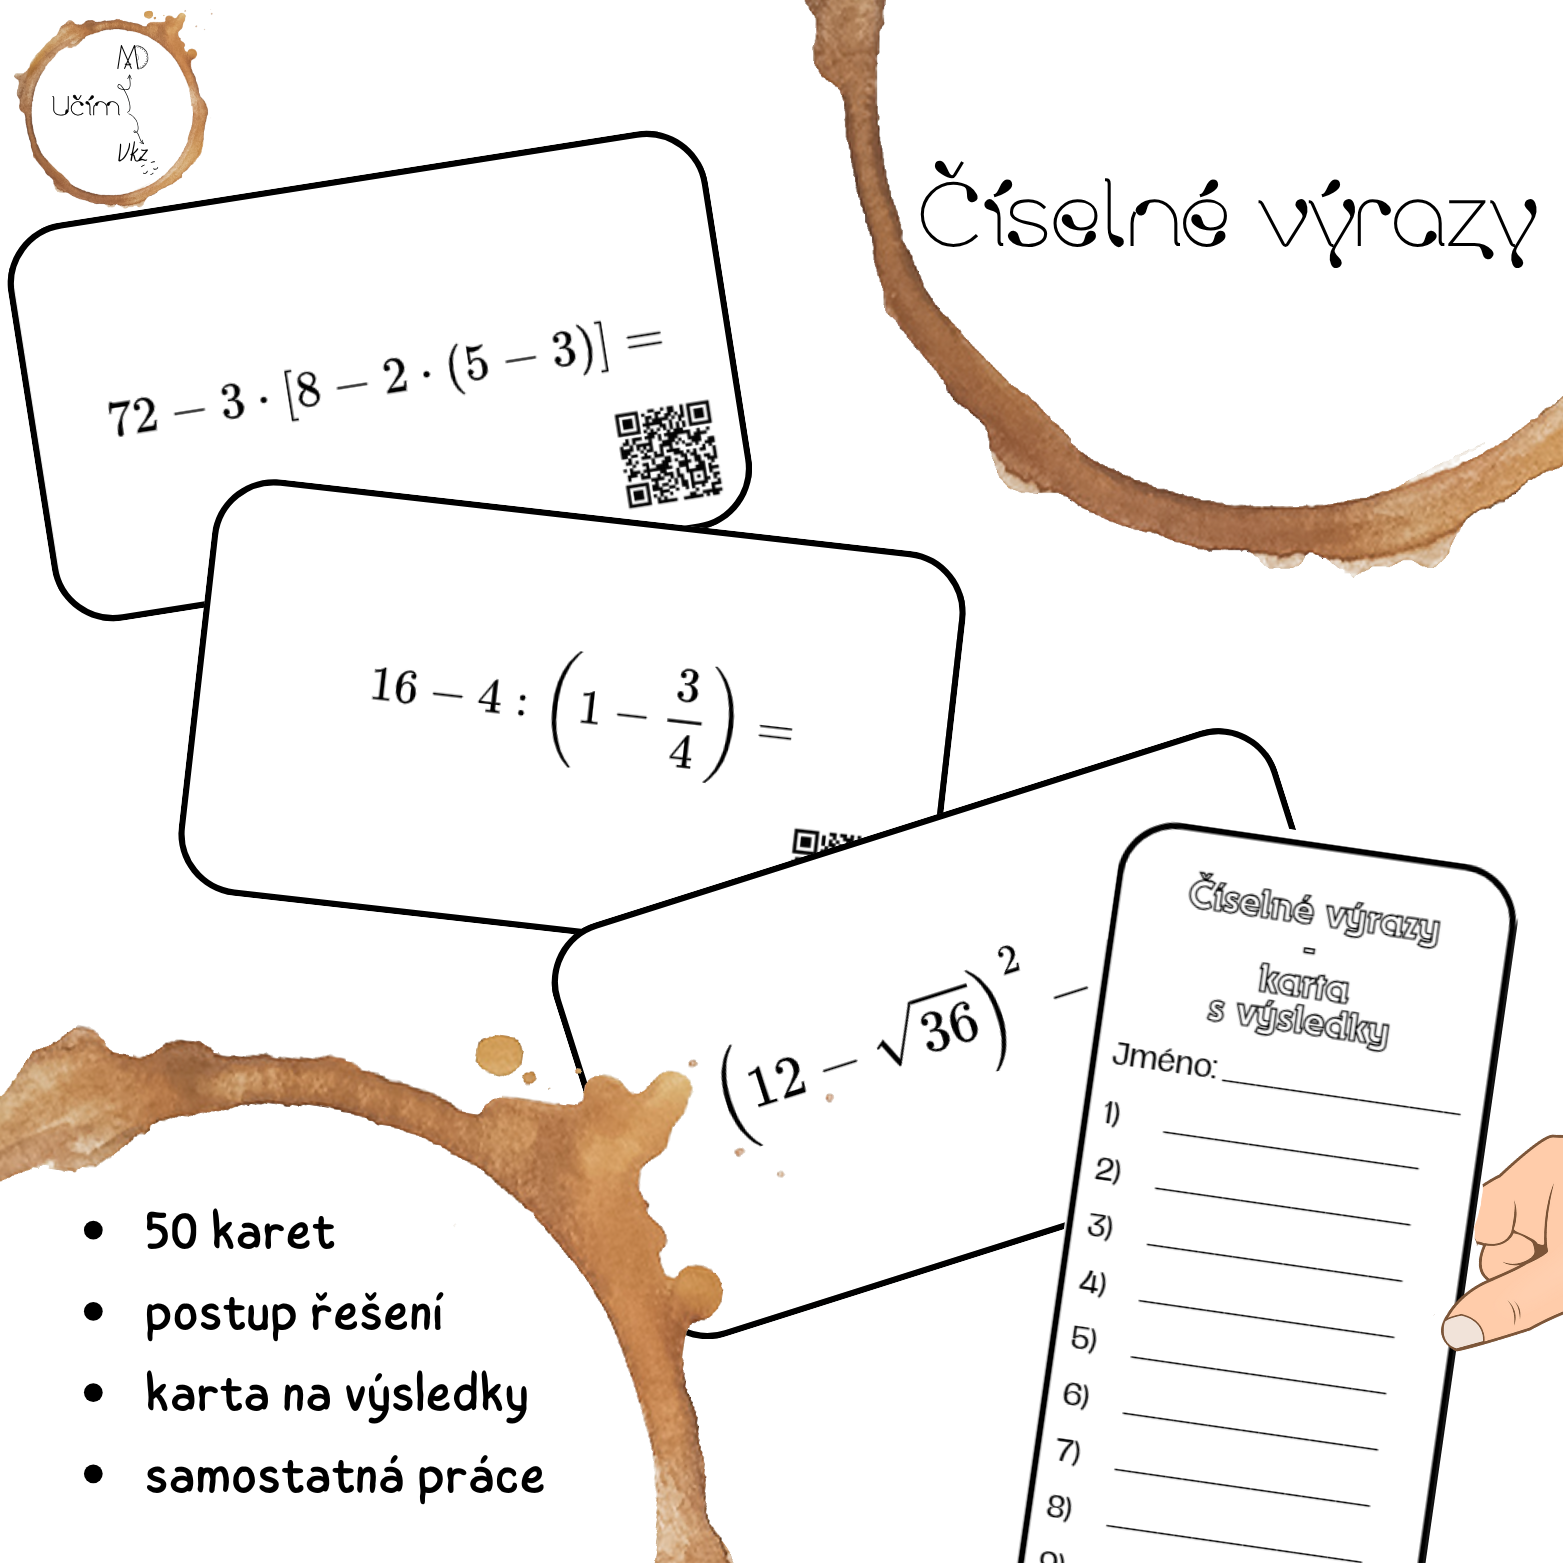 MD
Učím
Vkz
Číselné výrazy
72 − 3 · [8 − 2 · (5 − 3)] =
16 − 4 : (1 − 3/4) =
(12 − √36)² −
Číselné výrazy
-
karta
s výsledky
Jméno:
1)
2)
3)
4)
5)
6)
7)
8)
9)
• 50 karet
• postup řešení
• karta na výsledky
• samostatná práce